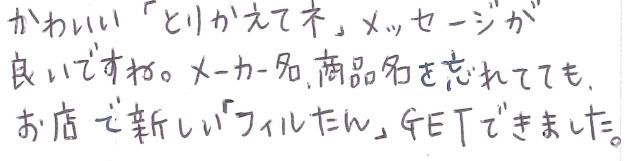 かわいい「とりかえてネ」メッセージが
良いですね。メーカー名、商品名を忘れてても、
お店で新しい「フィルたん」GETできました。